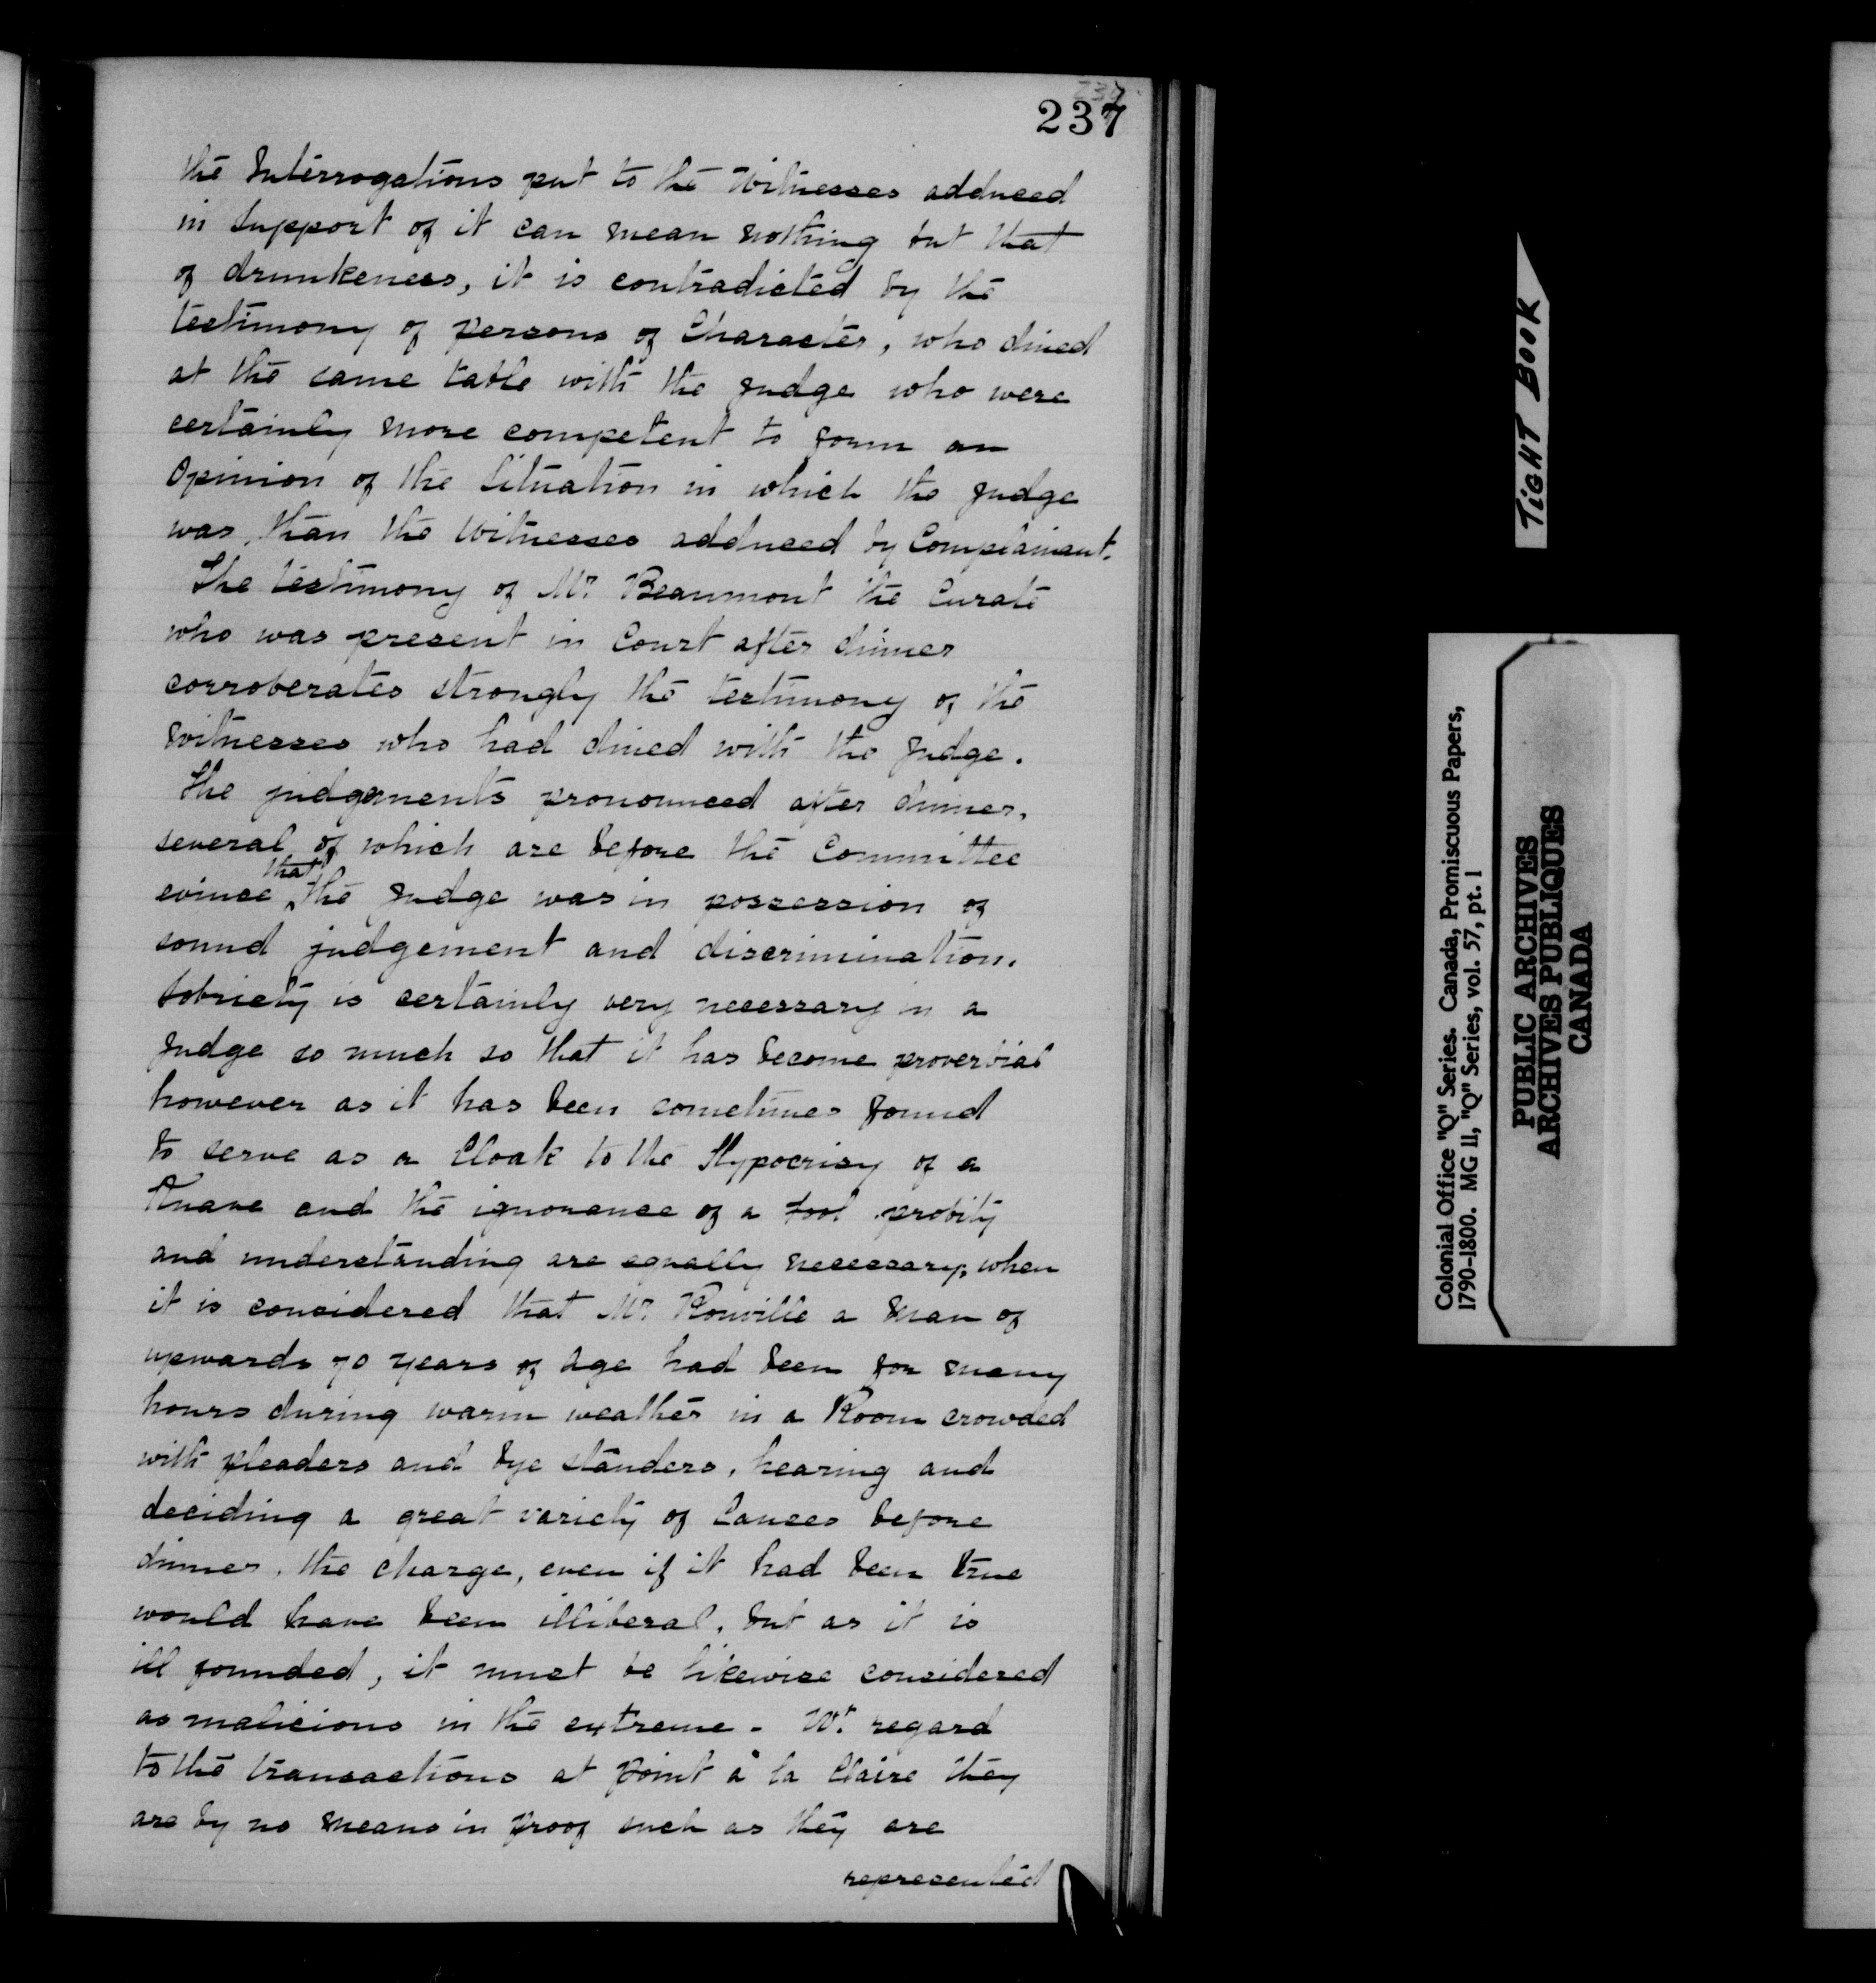 237
237
the Interrogations put to the Witnesses adduced
in Support of it can mean nothing but that
of drunkeness, it is contradicted by the
testimony of persons of Character, who dined
at the same table with the Judge who were
certainly more competent to form an
Opinion of the Situation in which the Judge
was, than the Witnesses adduced by Complainant.
The testimony of Mr. Beaumont the Curate
who was present in Court after dinner
corroberates strongly the testimony of the
Witnesses who had dined with the Judge.
The judgements pronounced after dinner,
several of which are before the Committee
evince that the Judge was in possession of
sound judgement and discrimination.
Sobriety is certainly very necessary in a
Judge so much so that it has become proverbial
however as it has been sometimes found
to serve as a Cloak to the Hypocrisy of a
Knave and the ignorance of a fool probity
and understanding are equally necessary, when
it is considered that Mr. Rouville a Man of
upwards 70 years of Age had been for many
hours during warm weather in a Room crowded
with pleaders and bye standers, hearing and
deciding a great variety of Causes before
dinner, the charge, even if it had been true
would have been illiberal, but as it is
ill founded, it must be likewise considered
as malicious in the extreme - Wt. regard
to the transactions at Point à la Claire they
are by no means in proof such as they are
represented
TIGHT BOOK
Colonial Office "Q" Series. Canada, Promiscuous Papers,
1790-1800. MG 11, "Q" Series, vol. 57, pt. 1
PUBLIC ARCHIVES
ARCHIVES PUBLIQUES
CANADA